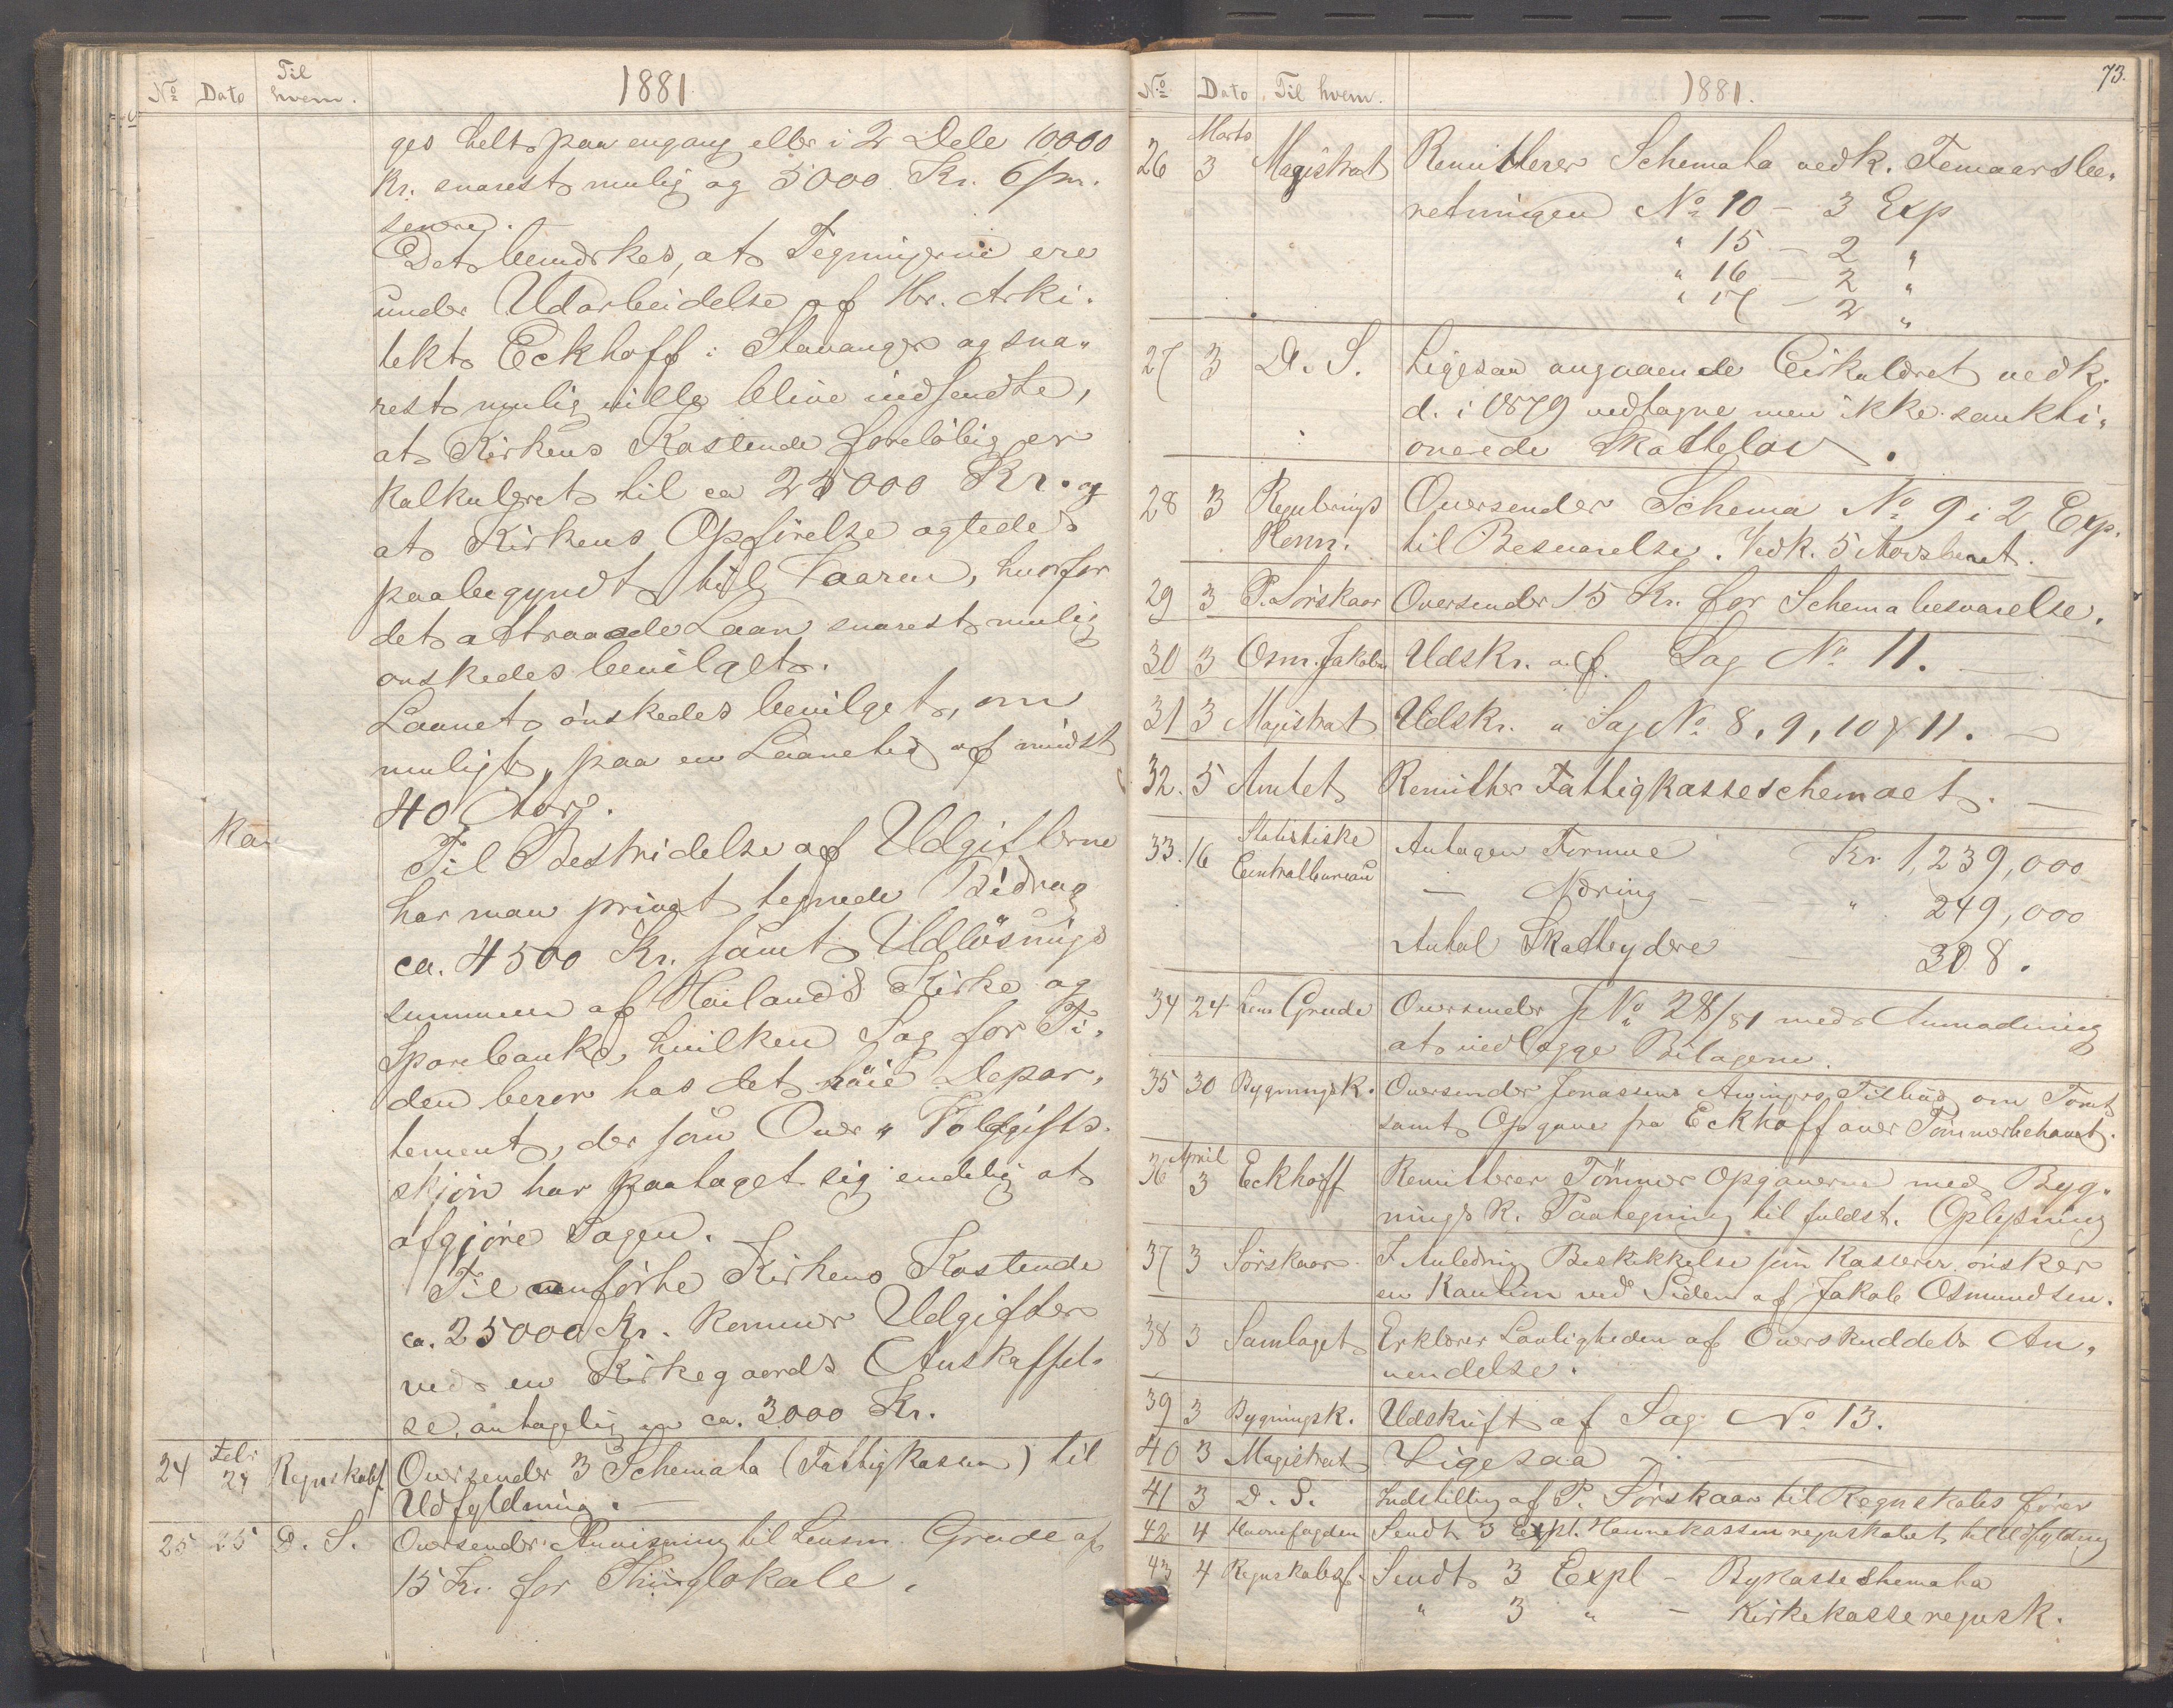 No Dato Til hvem. 1881
ges helt paa engang eller i 2 Dele 10000
Kr. snarest mulig og 5000 Kr. 6/m.
senere.
Det bemærkes, at Tegningerne ere
under Udarbeidelse af Hr. Arki-
tekt Eckhoff i Stavanger og sna-
rest mulig ville blive indsendte,
at Kirkens Kostende foreløbig er
kalkuleret til ca 25000 Kr. og
at Kirkens Opførelse agtedes
paabegyndt til Vaaren, hvorfor
det attraaede Laan snarest mulig
onskedes bevilget.
Laanet ønskedes bevilget, om
muligt, paa en Laanetid af mindst
40 Aar.
Til Bestridelse af Udgifterne
har man privat tegnede Bidrag
ca. 4500 Kr. samt Udløsnings
summen af Høilands Kirke og
Sparebank, hvilken Sag for Ti-
den beror hos det høie Depar-
tement, der som Over "Voldgifts-
skjøn har paataget sig endelig at
afgjøre Sagen.
Til anførte Kirkens Kostende
ca. 25000 Kr. kommer Udgifter
ved en Kirkegaards Anskaffel-
se, antagelig en ca. 3000 Kr.
24 Febr 24 Regnskabsf. Oversender 3 Schemata (Fattigkassen) til
Udfyldning. —
25 25 D. S. Oversender Anvisning til Lensm. Grude af
15 Kr. for Thinglokale.
73.
No Dato Til hvem. 1881.
26 Marts 3 Magistrat Remitterer Schemata vedk. Femaarsbe-
retningen No 10 — 3 Exp
" 15 — 2 "
" 16 — 2 "
" 17 — 2 "
27 3 D. S. Ligesaa angaaende Cirkulæret vedk.
d. i 1879 vedtagne men ikke sankti-
onerede Skattelov.
28 3 Regulerings Komm. Oversender Schema No 9 i 2 Exp.
til Besvarelse. Vedk. 5 Aarsberet.
29 3 P. Sörskaar Oversender 15 Kr. for Schemabesvarelse.
30 3 Osm. Jakobs. Udskr. af Sag No 11. —
31 3 Magistrat Udskr. " Sag No 8, 9, 10 & 11. —
32. 5 Amtet Remitter Fattigkasseschemaet. —
33. 16 Statistiske Centralbureau Antagen Formue Kr 1,239,000
— Næring — " 249,000
Antal Skatteydere — 308.
34 24 Lens Grude Oversender J No 28/81 med Anmodning
at vedlægge Bilagene.
35 30 Bygningsk. Oversender Jonassens Tilbud om Tomt
samt Opgave fra Eckhoff over Tømmerbehovet.
36 April 3 Eckhoff Remitterer Tømmer opgaverne med Byg-
nings K. Paategning til fuldst. Oplysning
37 3 Sörskaar I Anledning Beskikkelse som Kasserer ønsker
en Kaution ved Siden af Jakob Osmundsen.
38 3 Samlaget Erklærer Lovligheden af Overskuddets An-
vendelse.
39 3 Bygningsk. Udskrift af Sag No 13.
40 3 Magistrat Ligesaa —
41 3 D. S. Indstilling af P. Sörskaar til Regnskabsfører
42 4 Havnefogden Sendt 3 Expl. Havnekassenregnskabet til Udfylding
43 4 Regnskabsf. Sendt 3 Expl — Bykasseschemata
" 3 " — Kirkekasseregnsk.